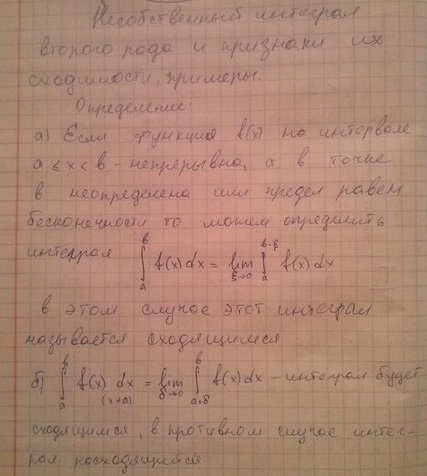 Несобственный интеграл
второго рода и признаки их
сходимости, примеры.
Определение:
а) Если функция f(x) на интервале
a ≤ x < b - непрерывна, а в точке
b неопределена или предел равен
бесконечности то можем определить
интеграл ∫ₐᵇ f(x) dx = lim_{ξ→0} ∫ₐ^{b-ξ} f(x) dx
в этом случае этот интеграл
называется сходящимся
б) ∫ₐᵇ f(x) dx (x≠a) = lim_{δ→0} ∫_{a+δ}^b f(x) dx - интеграл будет
сходящимся, в противном случае интег-
рал расходящийся